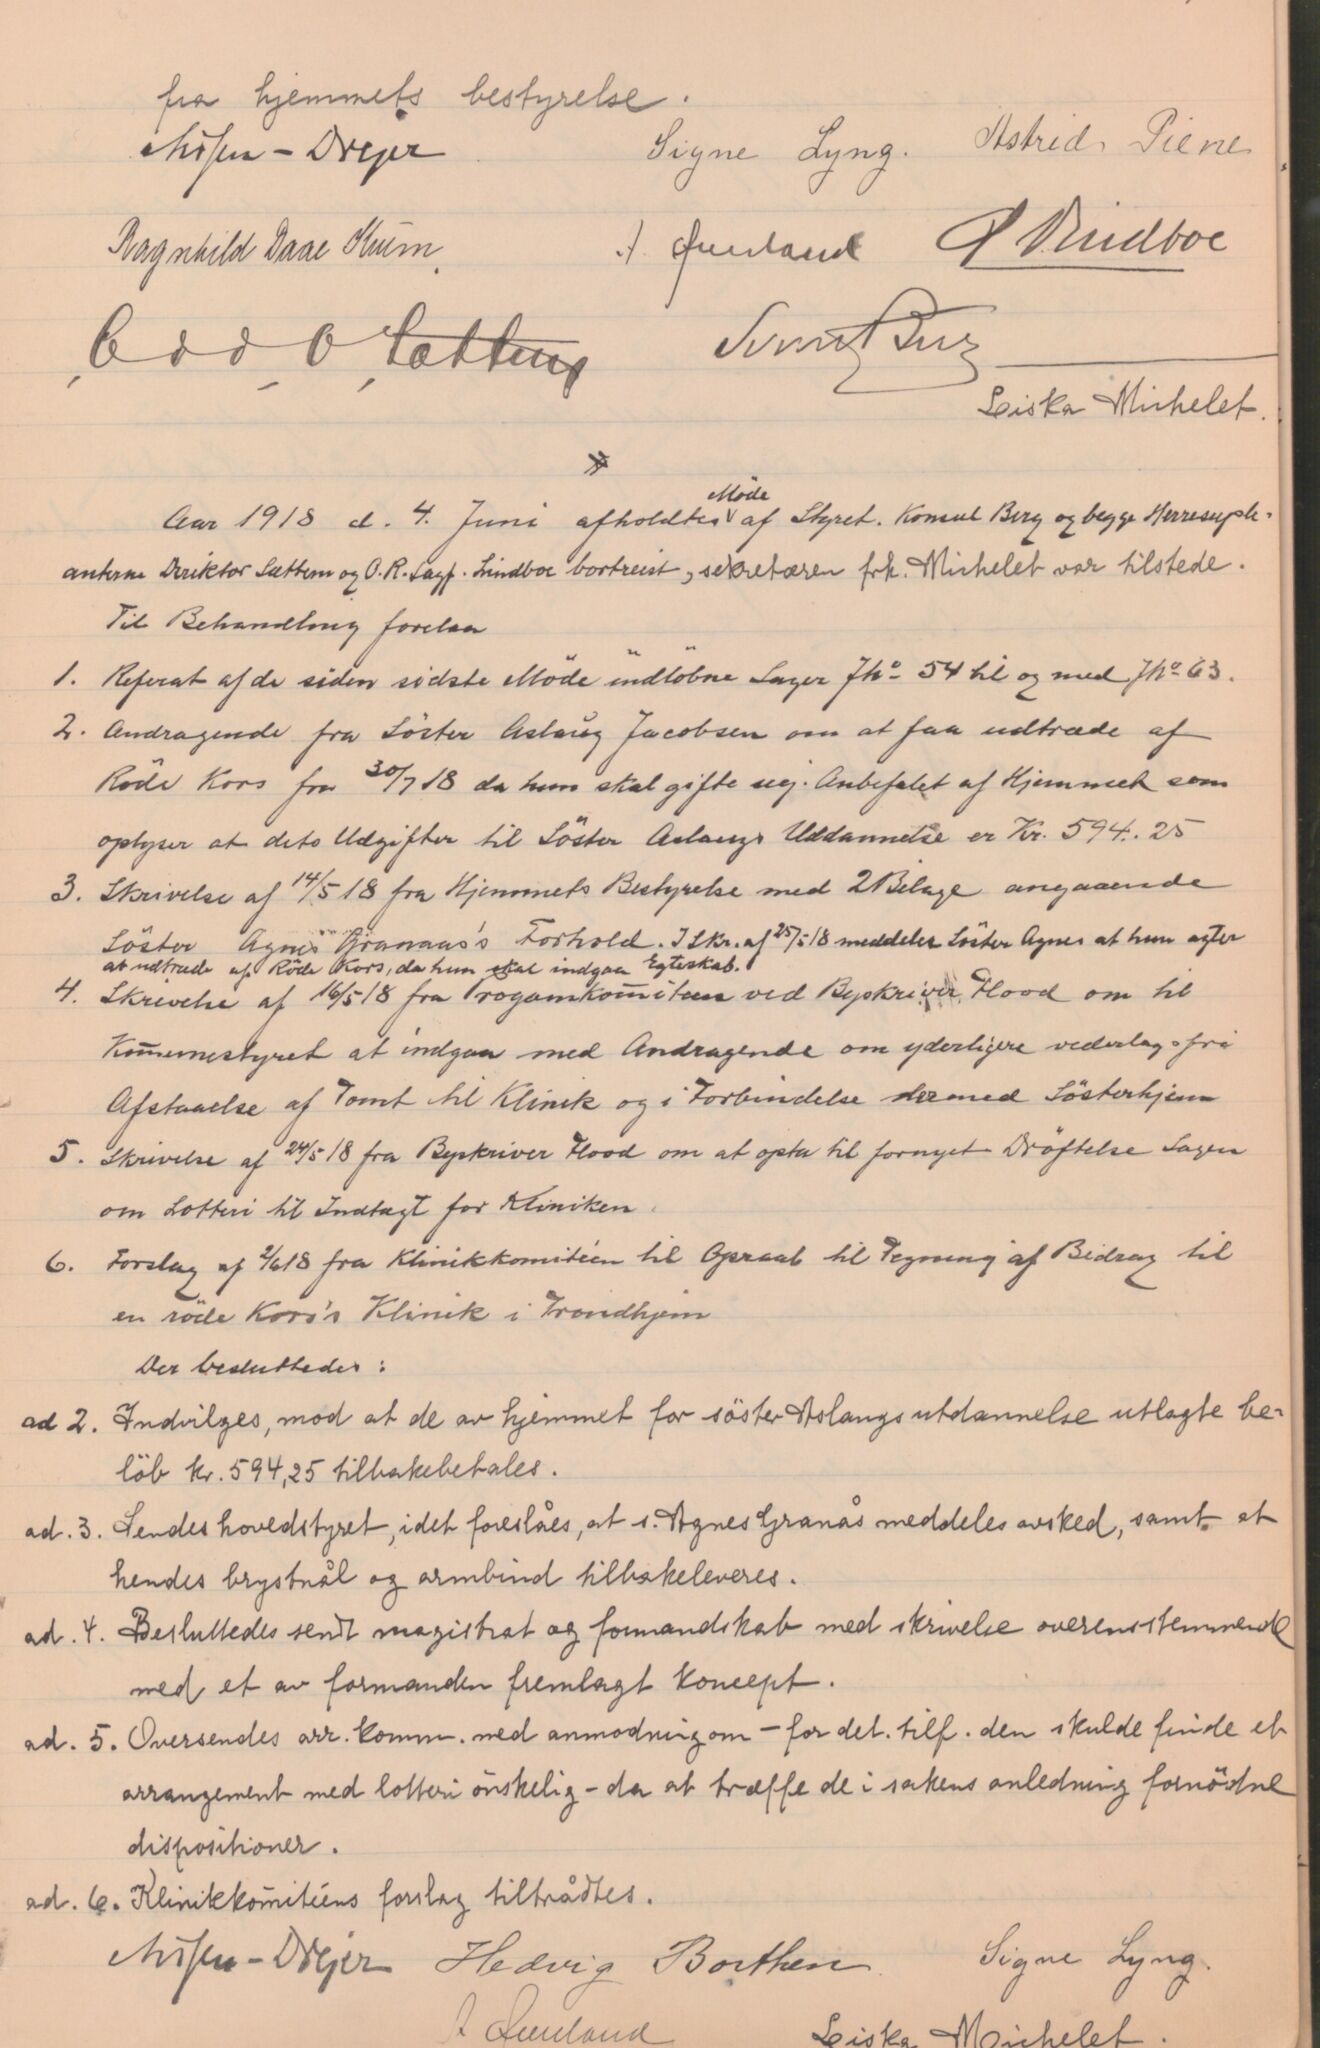 fra hjemmets bestyrelse.
Nissen-Drejer Signe Lyng. Astrid Piene
Ragnhild Daae Thüm. A. Øverland Lindboe
Odd O. Lættem
Liska Michelet.
Aar 1918 d. 4. Juni afholdtes Möde af Styret. Konsul Berg og begge Herresuple-
anterne Direktör Sættem og O.R. Sagf. Lindboe bortreist, sekretæren frk. Michelet var tilstede.
Til Behandling forelaa
1. Referat af de siden sidste Möde indlöbne Sager Jno 54 til og med Jno 63.
2. Andragende fra Söster Aslaug Jacobsen om at faa udtræde af
Röde Kors fra 30/7 18 da hun skal gifte sig. Anbefalet af Hjemmet som
oplyser at dets Udgifter til Söster Aslaugs Uddannelse er Kr. 594.25
3. Skrivelse af 14/5 18 fra Hjemmets Bestyrelse med 2 Bilage angaaende
Söster Agnes Granaas's Forhold. I Skr. af 25/5 18 meddeler Söster Agnes at hun agter
at udtræde af Röde Kors, da hun skal indgaa Egteskab.
4. Skrivelse af 16/5 18 fra Progamkom̄iteen ved Byskriver Flood om til
Kom̄unestyret at indgaa med Andragende om yderligere vederlagsfri
Afstaaelse af Tomt til Klinik og i Forbindelse dermed Sösterhjem
5. Skrivelse af 24/5 18 fra Byskriver Flood om at opta til fornyet Dröftelse Sagen
om Lotteri til Indtægt for Kliniken.
6. Forslag af 2/6 18 fra Klinikkomitéen til Opraab til Tegning af Bidrag til
en röde Kors's Klinik i Trondhjem
Der besluttedes:
ad 2. Indvilges, mod at de av hjemmet for söster Aslaugs utdannelse utlagte be-
löb kr. 594,25 tilbakebetales.
ad. 3. Sendes hovedstyret, idet foreslåes, at s. Agnes Granås meddeles avsked, samt at
hendes brystnål og armbind tilbakeleveres.
ad. 4. Besluttedes sendt magistrat og formandskab med skrivelse overensstemmende
med et av formanden fremlagt koncept.
ad. 5. Oversendes arr. komm. med anmodning om – for det. tilf. den skulde finde et
arrangement med lotteri önskelig – da at træffe de i sakens anledning fornödne
dispositioner.
ad. 6. Klinikkom̄itéens forslag tiltrådtes.
Nissen-Drejer Hedvig Borthen Signe Lyng.
A. Øverland Liska Michelet.